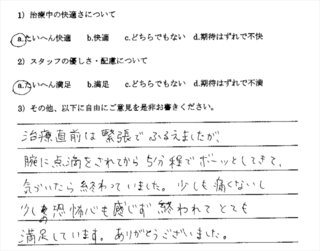 1) 治療中の快適さについて
a.たいへん快適 b.快適 c.どちらでもない d.期待はずれで不快
2) スタッフの優しさ・配慮について
a.たいへん満足 b.満足 c.どちらでもない d.期待はずれで不満
3) その他、以下に自由にご意見を是非お書きください。
治療直前は緊張でふるえましたが、
腕に点滴をされてから5分程でボーッとしてきて、
気づいたら終わっていました。少しも痛くないし
少しの恐怖心も感じず終われてとても
満足しています。ありがとうございました。